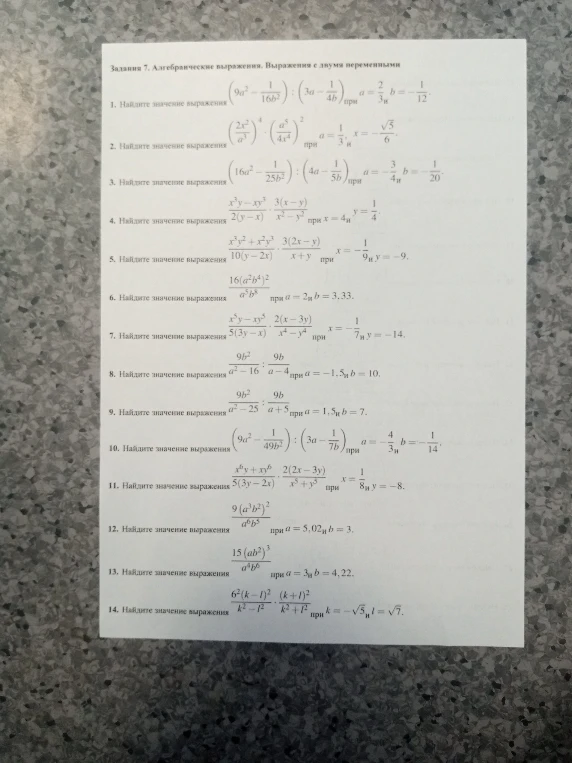 Задания 7. Алгебраические выражения. Выражения с двумя переменными
1. Найдите значение выражения (9a² − 1/(16b²)) : (3a − 1/(4b)) при a = 2/3 и b = −1/12.
2. Найдите значение выражения (2x²/a³)⁴ · (a⁵/(4x⁴))² при a = 1/3 и x = −√5/6.
3. Найдите значение выражения (16a² − 1/(25b²)) : (4a − 1/(5b)) при a = −3/4 и b = −1/20.
4. Найдите значение выражения (x³y − xy³)/(2(y − x)) · (3(x − y))/(x² − y²) при x = 4 и y = 1/4.
5. Найдите значение выражения (x³y² + x²y³)/(10(y − 2x)) · (3(2x − y))/(x + y) при x = −1/9 и y = −9.
6. Найдите значение выражения 16(a²b⁴)²/(a⁵b⁸) при a = 2 и b = 3,33.
7. Найдите значение выражения (x⁵y − xy⁵)/(5(3y − x)) · (2(x − 3y))/(x⁴ − y⁴) при x = −1/7 и y = −14.
8. Найдите значение выражения 9b²/(a² − 16) : 9b/(a − 4) при a = −1,5 и b = 10.
9. Найдите значение выражения 9b²/(a² − 25) : 9b/(a + 5) при a = 1,5 и b = 7.
10. Найдите значение выражения (9a² − 1/(49b²)) : (3a − 1/(7b)) при a = −4/3 и b = −1/14.
11. Найдите значение выражения (x⁶y + xy⁶)/(5(3y − 2x)) · (2(2x − 3y))/(x⁵ + y⁵) при x = 1/8 и y = −8.
12. Найдите значение выражения 9(a³b²)²/(a⁶b⁵) при a = 5,02 и b = 3.
13. Найдите значение выражения 15(ab²)³/(a⁴b⁶) при a = 3 и b = 4,22.
14. Найдите значение выражения 6²(k − l)²/(k² − l²) · (k + l)²/(k² + l²) при k = −√5 и l = √7.